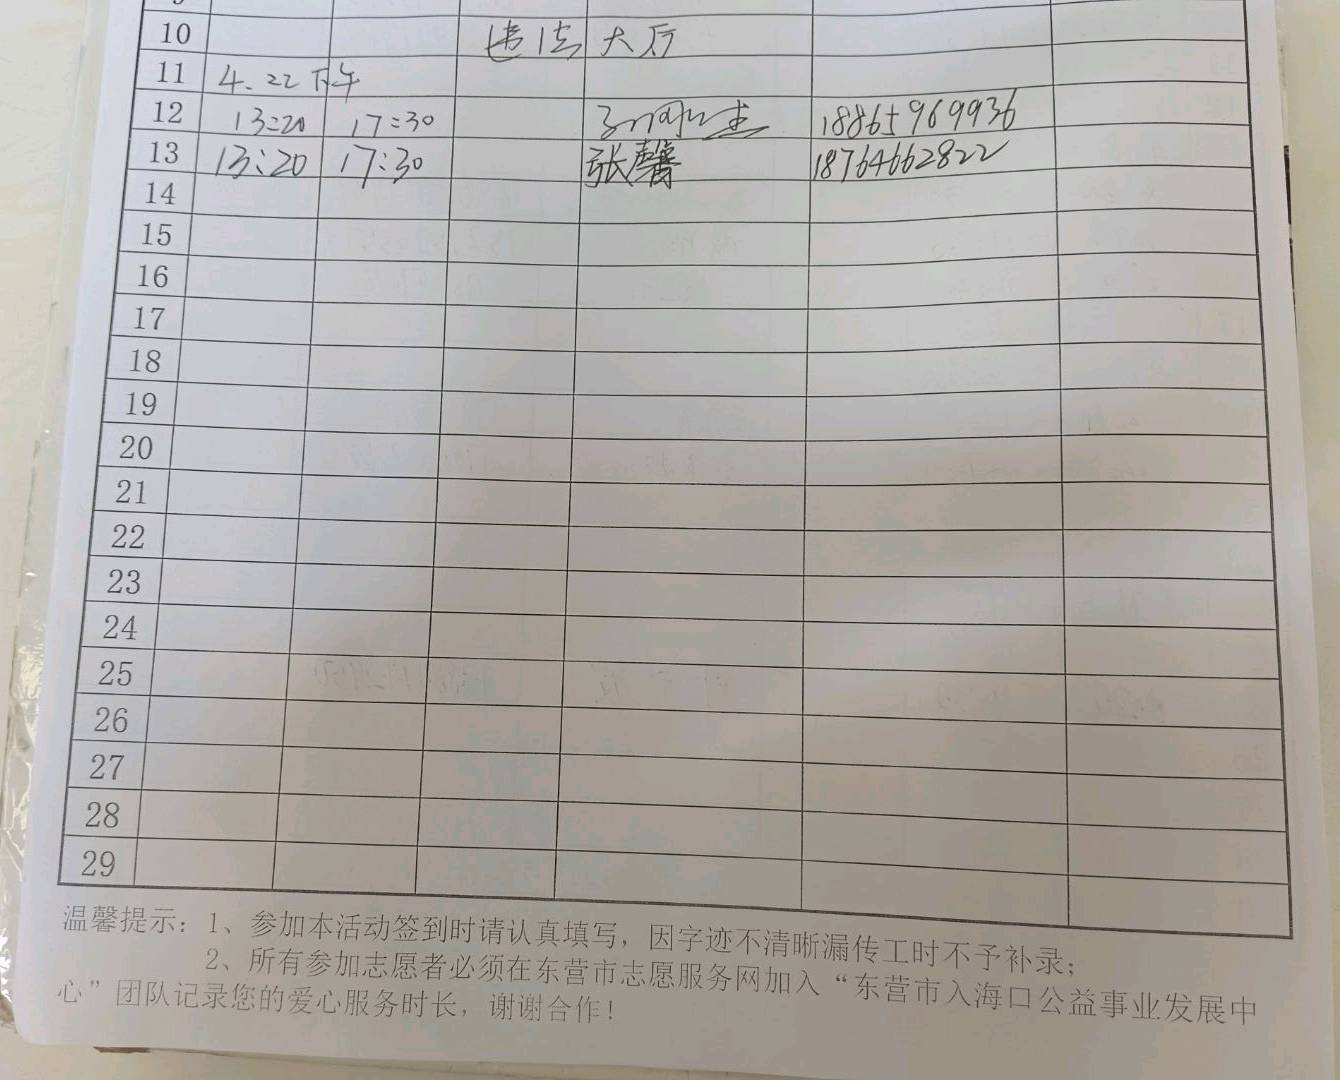 10 违法大厅
11 4.22下午
12 13:20 17:30 18865969936
13 13:20 17:30 张馨 18764662822
14
15
16
17
18
19
20
21
22
23
24
25
26
27
28
29
温馨提示：1、参加本活动签到时请认真填写，因字迹不清晰漏传工时不予补录；
2、所有参加志愿者必须在东营市志愿服务网加入“东营市入海口公益事业发展中
心”团队记录您的爱心服务时长，谢谢合作！